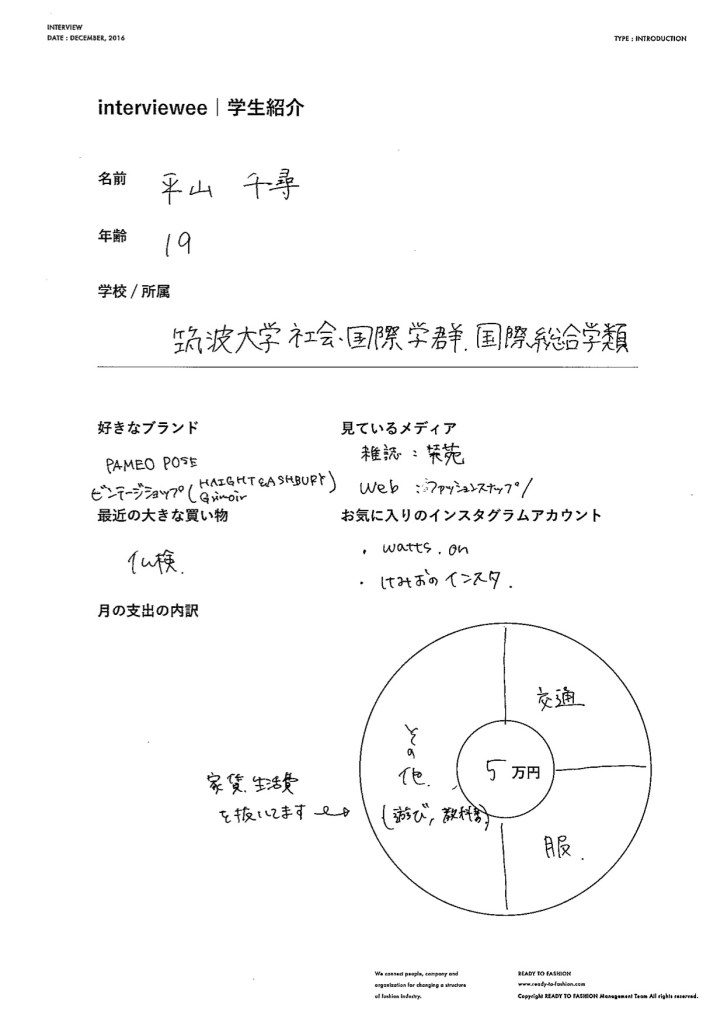 INTERVIEW
DATE : DECEMBER, 2016
TYPE : INTRODUCTION
interviewee｜学生紹介
名前 平山 千尋
年齢 19
学校 / 所属
筑波大学 社会・国際学群. 国際総合学類
好きなブランド
PAMEO POSE
ビンテージショップ (HAIGHT&ASHBURY
Grimoir)
見ているメディア
雑誌 : 装苑
Web : ファッションスナップ/
最近の大きな買い物
仏検.
お気に入りのインスタグラムアカウント
・ watts. on
・ けみおのインスタ.
月の支出の内訳
交通
その他.
(遊び, 教科書)
5 万円
服.
家賃. 生活費
を抜いてます
We connect people, company and
organization for changing a structure
of fashion industry.
READY TO FASHION
www.ready-to-fashion.com
Copyright READY TO FASHION Management Team All rights reserved.